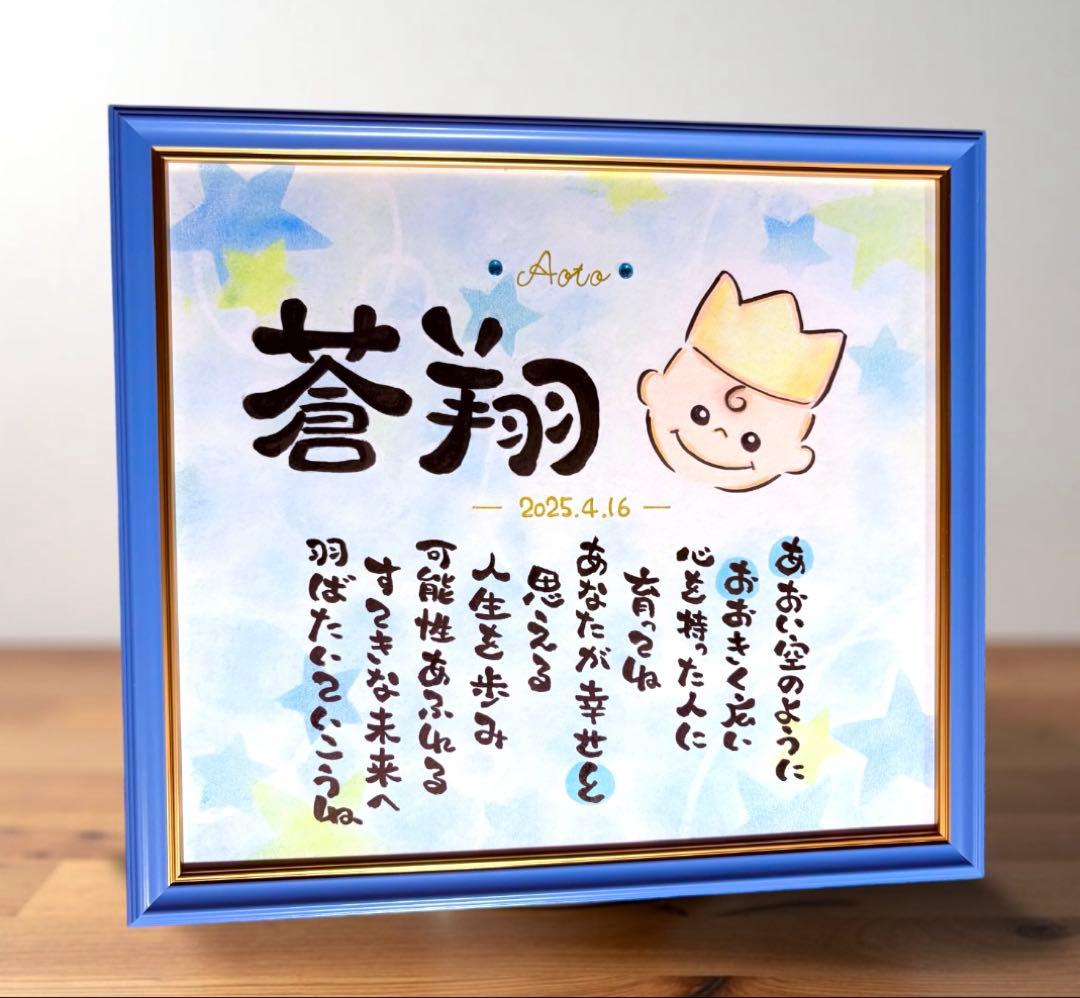 Aoto
蒼翔
2025.4.16
あおい空のように
おおきく広い
心を持った人に
育ってね
あなたが幸せと
思える
人生を歩み
可能性あふれる
すてきな未来へ
羽ばたいていこうね